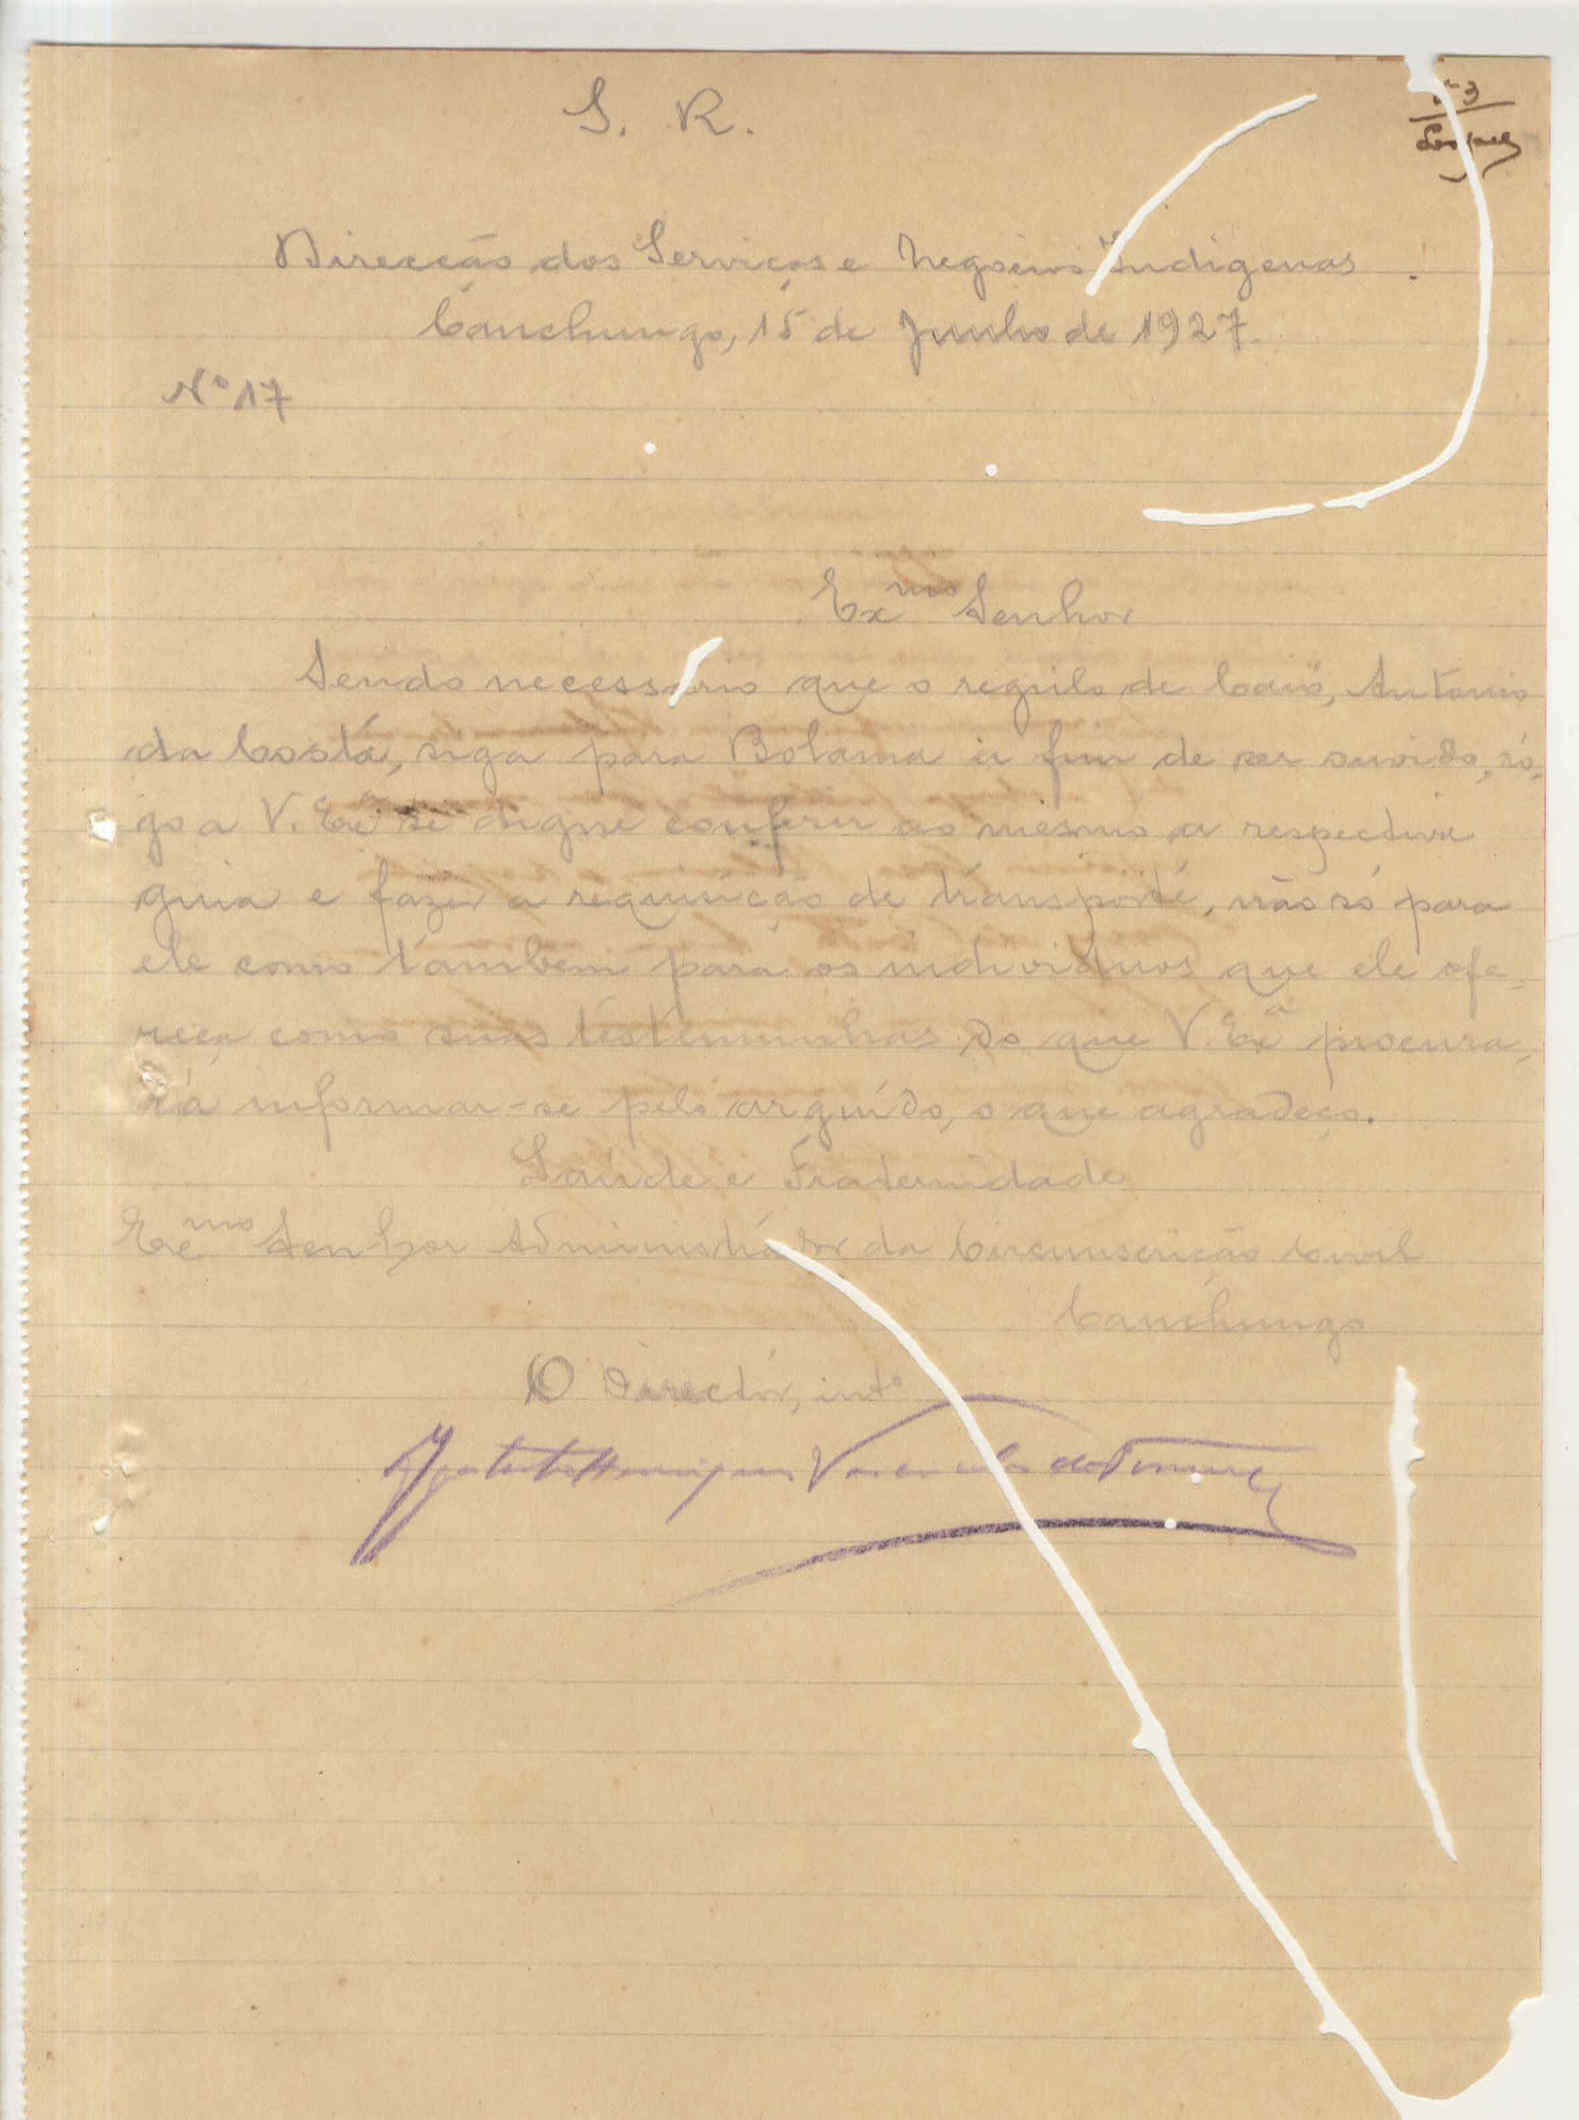 S. R.
nº 3
Direcção dos Serviços e Negocios Indigenas
Canchungo, 15 de Junho de 1927.
Nº 17
Exmo Senhor
Sendo necessario que o regulo de Caió, Antonio
da Costa, siga para Bolama a fim de ser ouvido, ró-
go a V. Exª se digne conferir ao mesmo a respectiva
guia e fazer a requisição de transporte, não só para
ele como tambem para os individuos que ele ofe-
reça como suas testemunhas do que V. Exª procura-
rá informar-se pelo arguido, o que agradeço.
Saúde e Fraternidade
Exmo Senhor Administrador da Circunscrição Civil
Canchungo
O Director, intº
Henriques Vasconcelos de